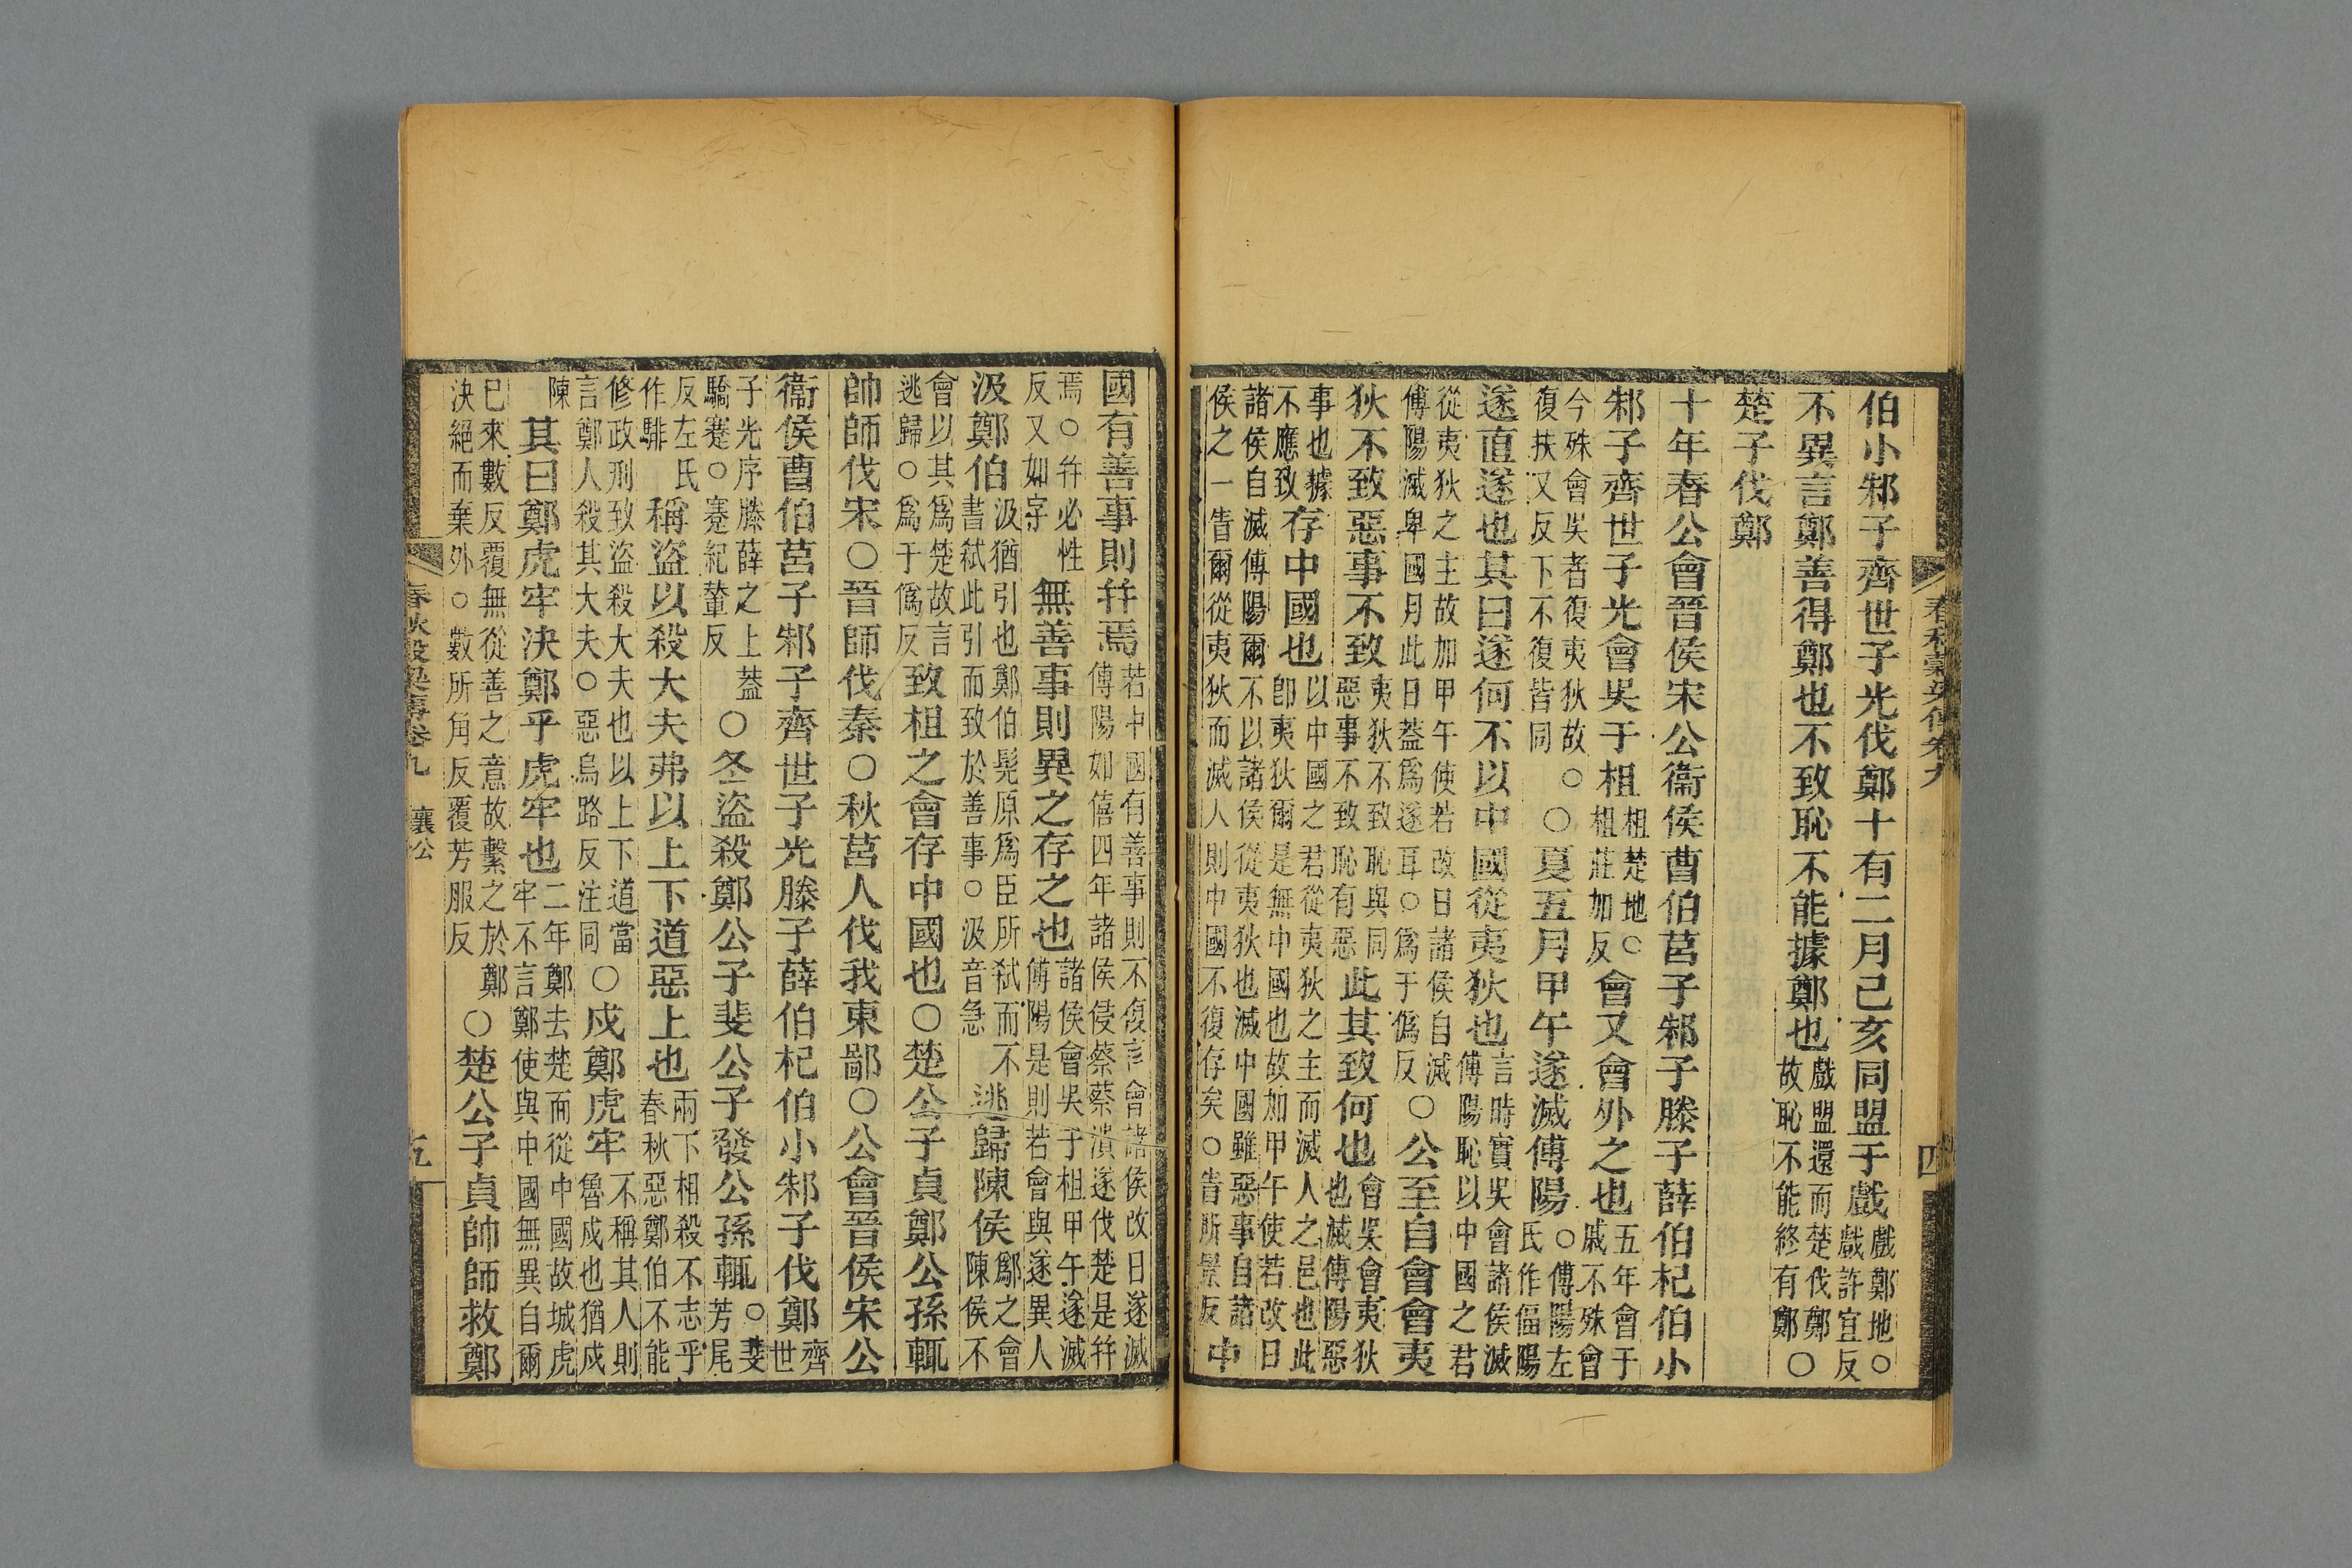 春秋穀梁傳卷九 四
伯小邾子齊世子光伐鄭十有二月己亥同盟于戲戲鄭地○戲許宜反
不異言鄭善得鄭也不致恥不能據鄭也戲盟還而楚伐鄭故恥不能終有鄭○
楚子伐鄭
十年春公會晉侯宋公衞侯曹伯莒子邾子滕子薛伯杞伯小
邾子齊世子光會吳于柤柤楚地○柤莊加反會又會外之也五年會于戚不殊會
今殊會吳者復夷狄故○復扶又反下不復皆同○夏五月甲午遂滅傅陽○傅陽左氏作偪陽
遂直遂也其曰遂何不以中國從夷狄也言時實吳會諸侯滅傅陽恥以中國之君
從夷狄之主故加甲午使若改日諸侯自滅傅陽滅卑國月此日蓋爲遂耳○爲于僞反○公至自會會夷
狄不致惡事不致夷狄不致恥與同惡事不致恥有惡此其致何也會吳會夷狄也滅傅陽惡
事也據不應致存中國也以中國之君從夷狄之主而滅人之邑也此卽夷狄爾是無中國也故加甲午使若改日
諸侯自滅傅陽爾不以諸侯從夷狄也滅中國雖惡事自諸侯之一眚爾從夷狄而滅人則中國不復存矣○眚所景反中
國有善事則幷焉若中國有善事則不復言會諸侯改日遂滅傅陽如僖四年諸侯侵蔡蔡潰遂伐楚是幷
焉○幷必性反又如字無善事則異之存之也諸侯會吳于柤甲午遂滅傅陽是則若會與遂異人
汲鄭伯汲猶引也鄭伯髡原爲臣所弒而不書弒此引而致於善事○汲音急逃歸陳侯鄬之會陳侯不
會以其爲楚故言逃歸○爲于僞反致柤之會存中國也○楚公子貞鄭公孫輒
帥師伐宋○晉師伐秦○秋莒人伐我東鄙○公會晉侯宋公
衞侯曹伯莒子邾子齊世子光滕子薛伯杞伯小邾子伐鄭齊世
子光序滕薛之上蓋驕蹇○蹇紀輦反○冬盜殺鄭公子斐公子發公孫輒○斐芳尾
反左氏作騑稱盜以殺大夫弗以上下道惡上也兩下相殺不志乎春秋惡鄭伯不能
修政刑致盜殺大夫也以上下道當言鄭人殺其大夫○惡烏路反注同○戍鄭虎牢不稱其人則魯戍也猶戍
陳其曰鄭虎牢決鄭乎虎牢也二年鄭去楚而從中國故城虎牢不言鄭使與中國無異自爾
已來數反覆無從善之意故繫之於鄭決絕而棄外○數所角反覆芳服反○楚公子貞帥師救鄭
春秋穀梁傳卷九 襄公 五